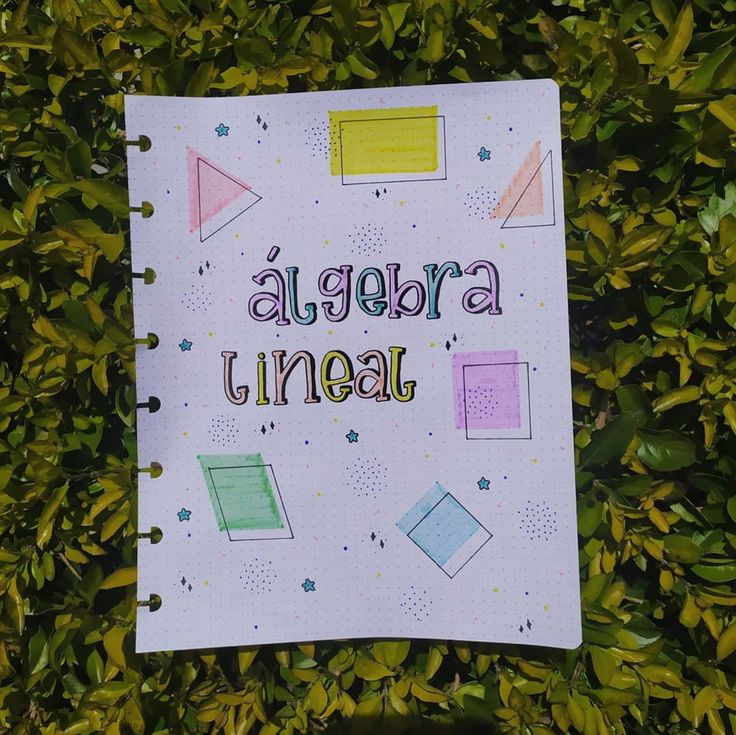 álgebra
lineal